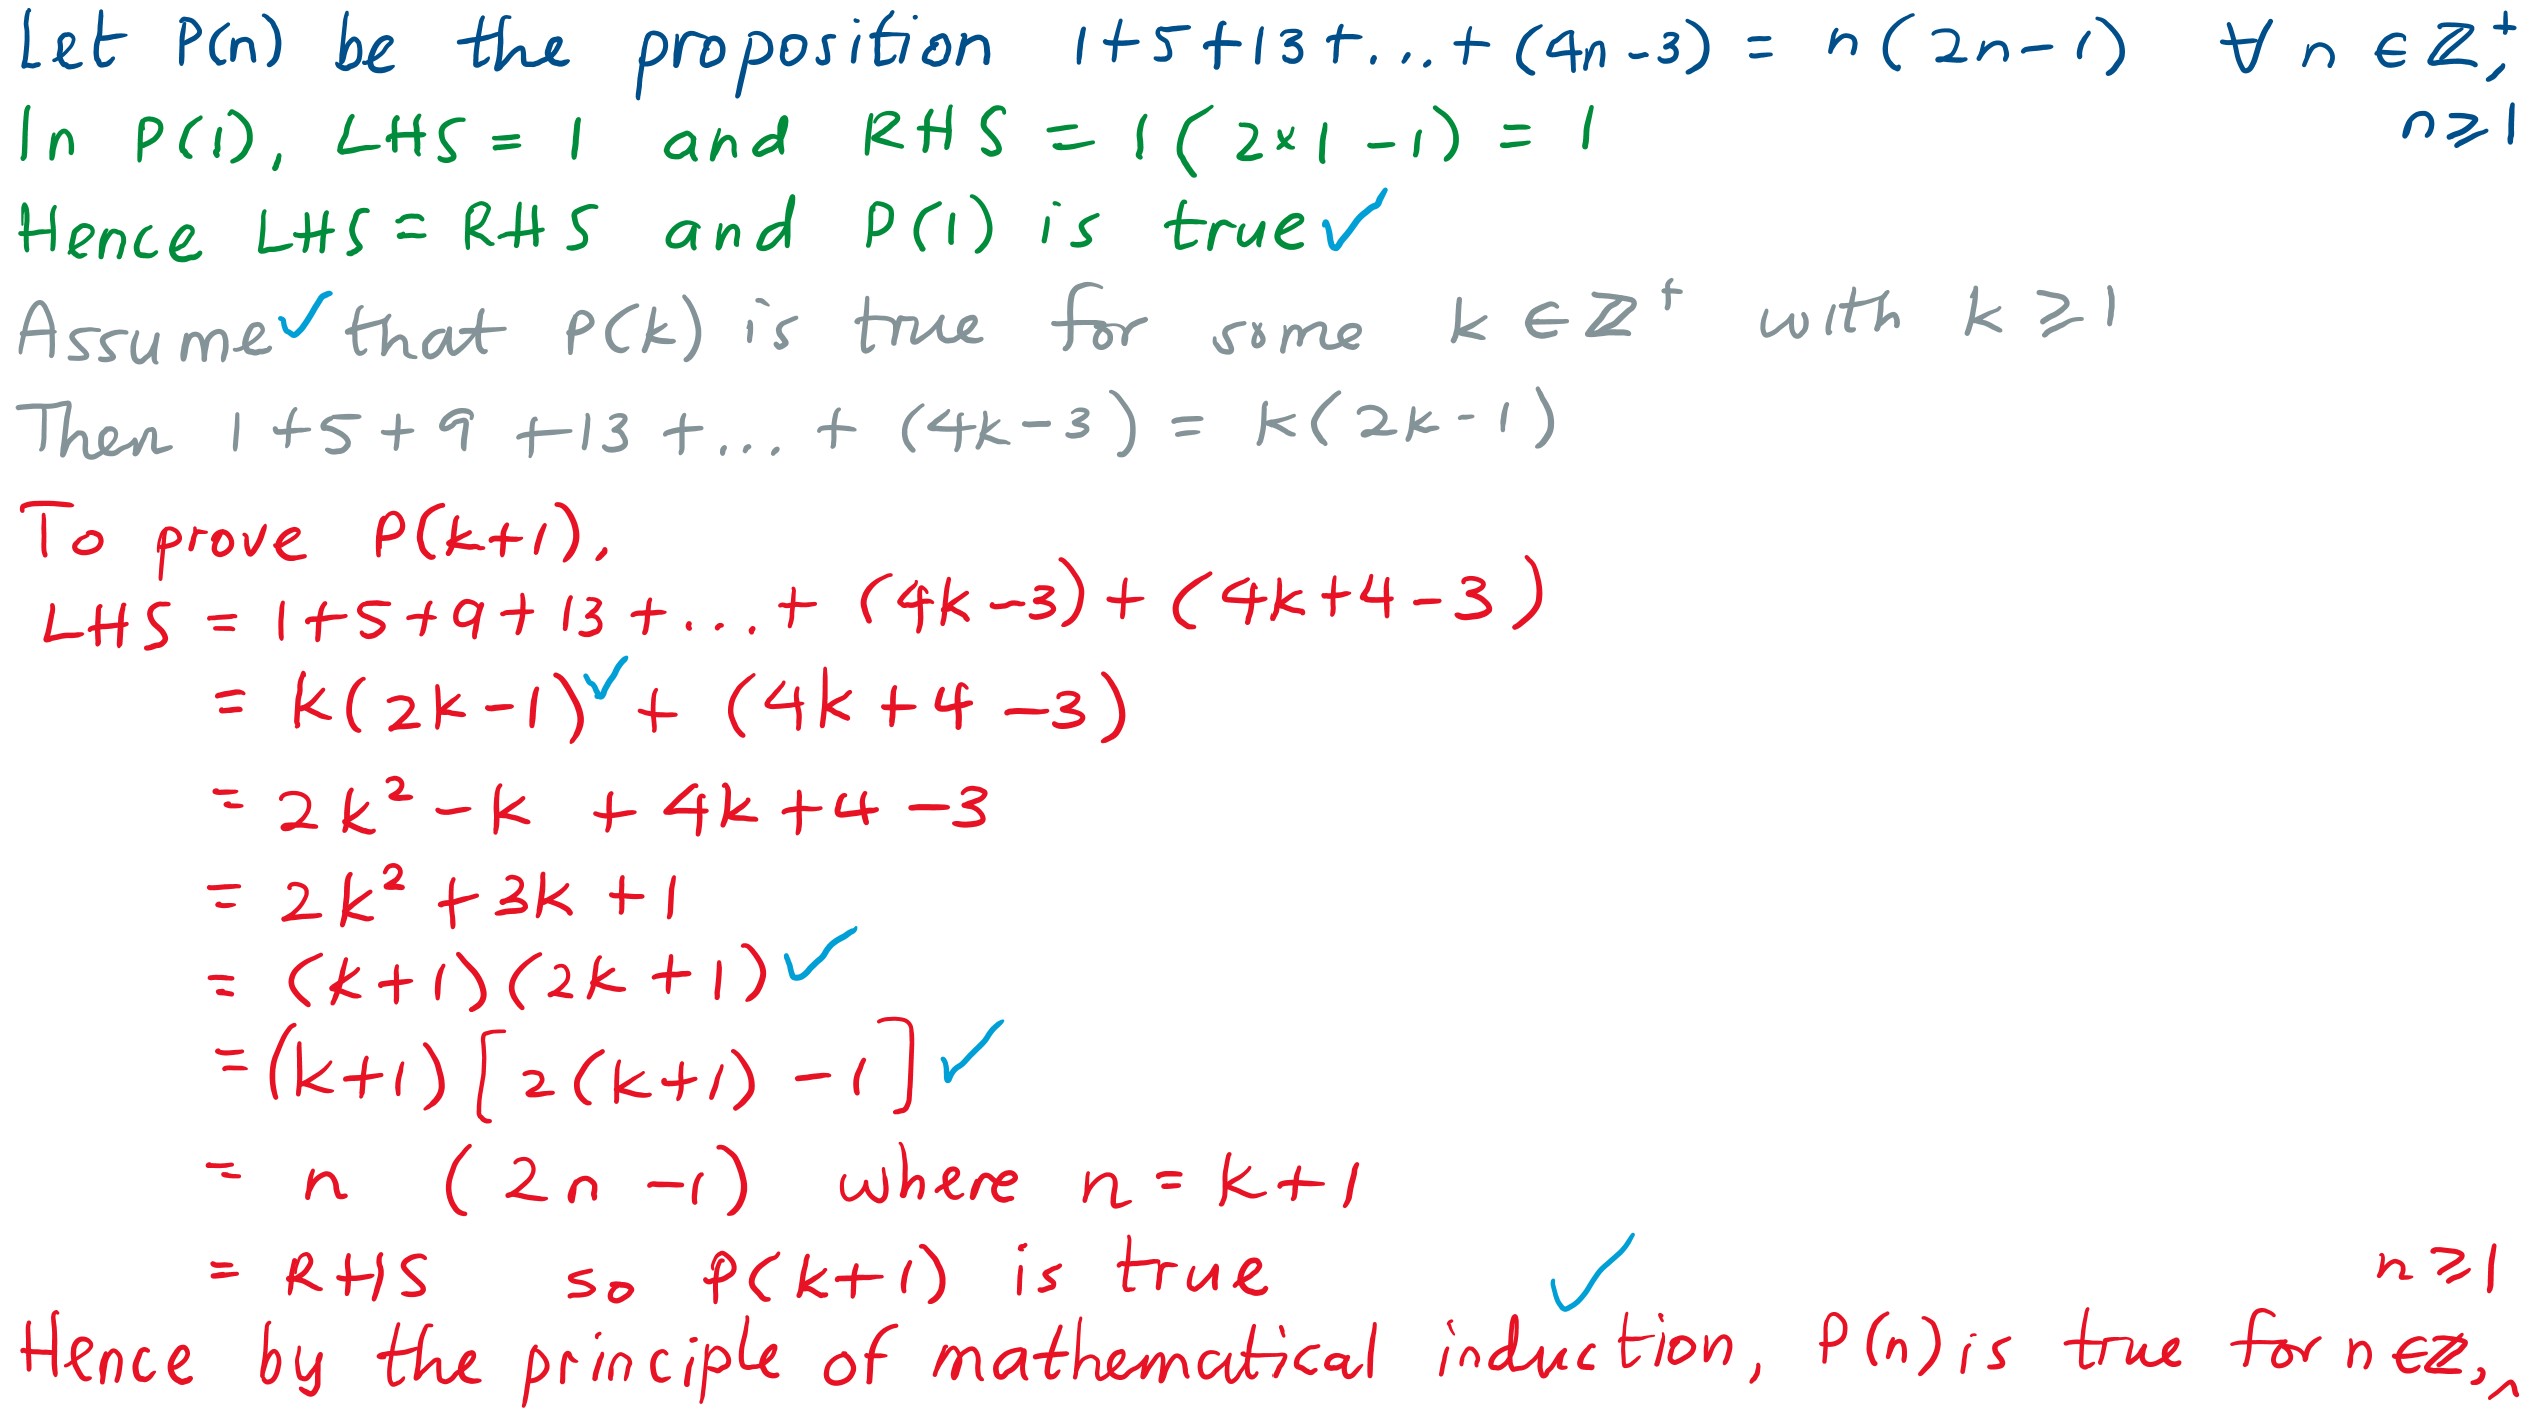 Let P(n) be the proposition 1+5+13+...+(4n-3) = n(2n-1) ∀ n ∈ ℤ⁺,
n ⩾ 1
In P(1), LHS = 1 and RHS = 1(2×1-1) = 1
Hence LHS = RHS and P(1) is true ✓
Assume ✓ that P(k) is true for some k ∈ ℤ⁺ with k ⩾ 1
Then 1+5+9+13+...+(4k-3) = k(2k-1)
To prove P(k+1),
LHS = 1+5+9+13+...+(4k-3)+(4k+4-3)
= k(2k-1) ✓ + (4k+4-3)
= 2k² - k + 4k+4-3
= 2k² + 3k + 1
= (k+1)(2k+1) ✓
= (k+1)[2(k+1)-1] ✓
= n (2n-1) where n = k+1
= RHS so P(k+1) is true
Hence by the principle of mathematical induction, ✓ P(n) is true for n ∈ ℤ, ‸
n ⩾ 1